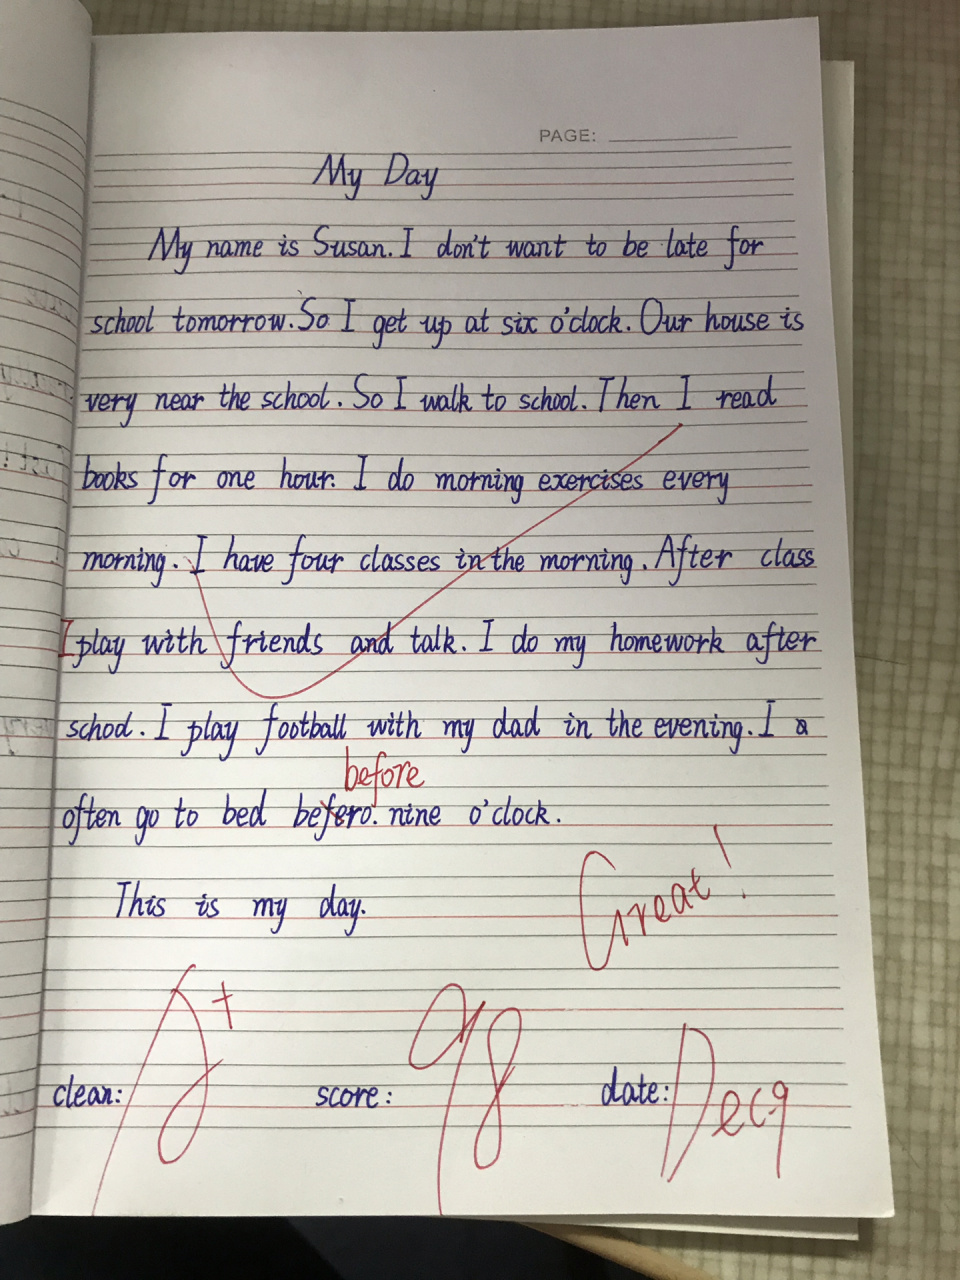 PAGE:
My Day
My name is Susan. I don't want to be late for
school tomorrow. So I get up at six o'clock. Our house is
very near the school. So I walk to school. Then I read
books for one hour. I do morning exercises every
morning. I have four classes in the morning. After class
I play with friends and talk. I do my homework after
school. I play football with my dad in the evening. I a
before
often go to bed befero. nine o'clock.
This is my day.
Great!
clean: A+ score: 98 date: Dec9